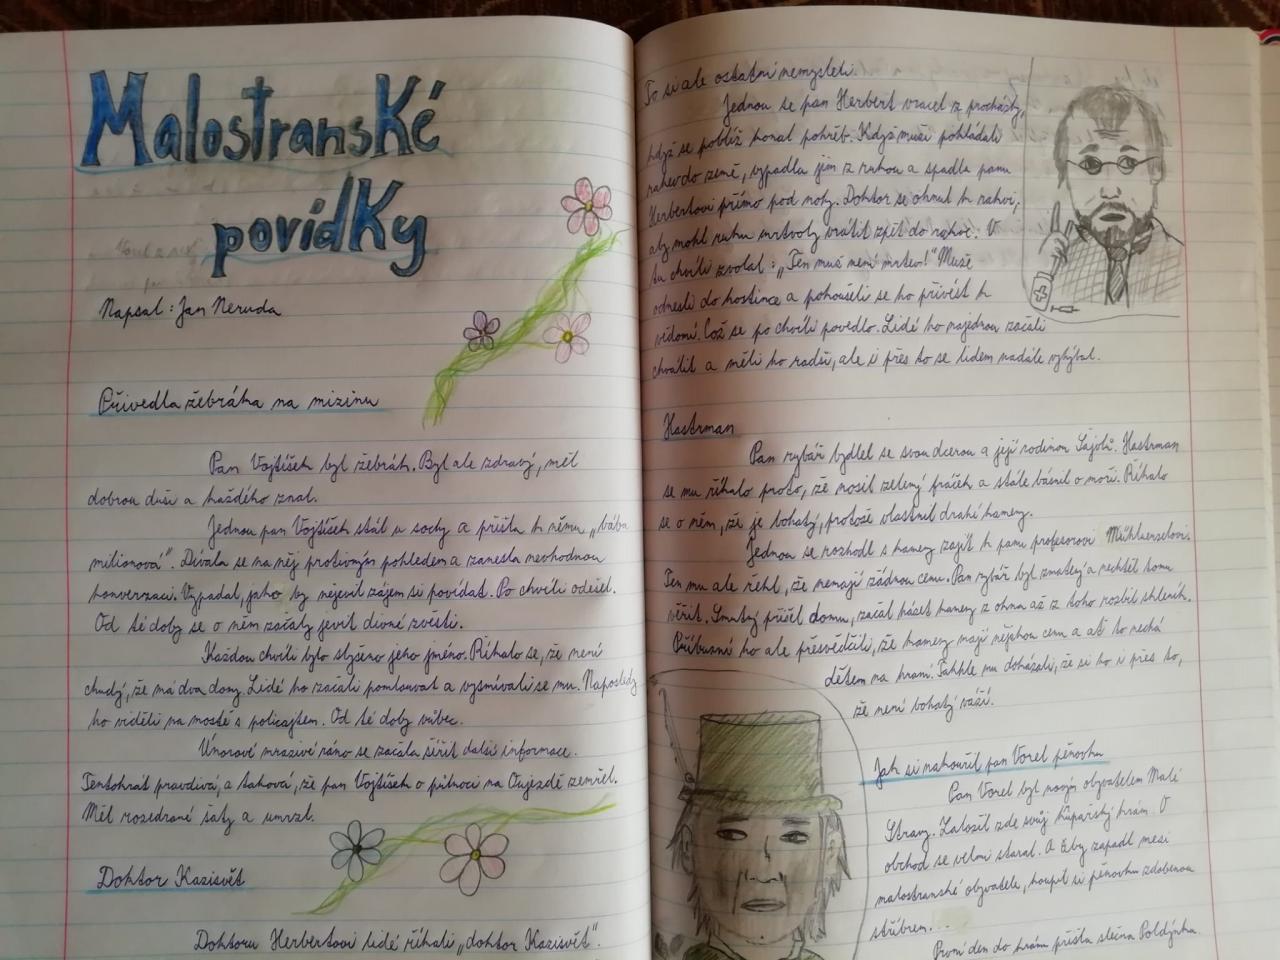 Malostranské
povídky
Napsal: Jan Neruda
Přivedla žebráka na mizinu
Pan Vojtíšek byl žebrák. Byl ale zdravý, měl
dobrou duši a každého znal.
Jednou pan Vojtíšek stál u sochy a přišla k němu „bába
milionová". Dívala se na něj protivným pohledem a zanesla nevhodnou
konverzaci. Vypadal, jako by nejevil zájem si povídat. Po chvíli odešel.
Od té doby se o něm začaly jevit divné zvěsti.
Každou chvíli bylo slyšeno jeho jméno. Říkalo se, že není
chudý, že má dva domy. Lidé ho začali pomlouvat a vysmívali se mu. Naposledy
ho viděli na mostě s policajtem. Od té doby vůbec.
Únorové mrazivé ráno se začala šířit další informace.
Tentokrát pravdivá, a taková, že pan Vojtíšek o půlnoci na Oujezdě zemřel.
Měl rozedrané šaty a umrzl.
Doktor Kazisvět
Doktoru Herbertovi lidé říkali „doktor Kazisvět".
To si ale ostatní nemysleli.
Jednou se pan Herbert vracel z procházky,
když se poblíž konal pohřeb. Když muži pokládali
rakev do země, vypadla jim z rukou a spadla panu
Herbertovi přímo pod nohy. Doktor se ohnul k rakvi,
aby mohl ruku mrtvoly vrátit zpět do rakve. V
tu chvíli zvolal: „Ten muž není mrtev!" Muže
odnesli do hostince a pokoušeli se ho přivést k
vědomí. Což se po chvíli povedlo. Lidé ho najednou začali
chválit a měli ho radši, ale i přes to se lidem nadále vyhýbal.
Hastrman
Pan rybář bydlel se svou dcerou a její rodinou Šajvlů. Hastrman
se mu říkalo proto, že nosil zelený fráček a stále básnil o moři. Říkalo
se o něm, že je bohatý, protože vlastnil drahé kameny.
Jednou se rozhodl s kameny zajít k panu profesorovi Mühlwenzelovi.
Ten mu ale řekl, že nemají žádnou cenu. Pan rybář byl zmatený a nechtěl tomu
věřit. Smutný přišel domu, začal házet kameny z okna až z toho rozbil skleník.
Příbuzní ho ale přesvědčili, že kameny mají nějakou cenu a ať to nechá
dětem na hraní. Takhle mu dokázali, že si ho i přes to,
že není bohatý váží.
Jak si nakouřil pan Vorel pěnovku
Pan Vorel byl novým obyvatelem Malé
Strany. Založil zde svůj krupařský krám. O
obchod se velmi staral. A aby zapadl mezi
malostranské obyvatele, koupil si pěnovku zdobenou
stříbrem...
První den do krámu přišla slečna Poldýnka